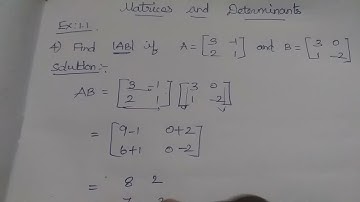 Matrices and Determinants
Ex:1.1
4) Find |AB| if A = [3 -1 and B = [3 0
2 1] 1 -2]
Solution:-
AB = [3 -1 [3 0
2 1] 1 -2]
= [9-1 0+2
6+1 0-2]
= 8 2
7